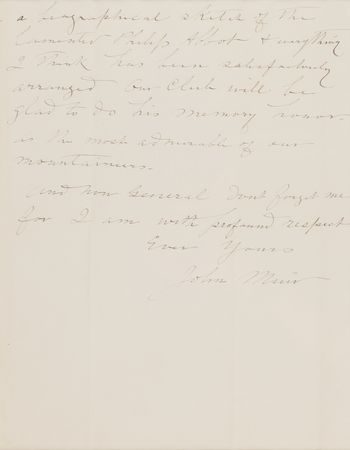 a biographical sketch of the
lamented Philip Abbot & everything
I think has been satisfactorily
arranged Our Club will be
glad to do his memory honor
as the most admirable of our
mountaineers.
And now General Dont forget me
for I am with profound respect
Ever Yours
John Muir